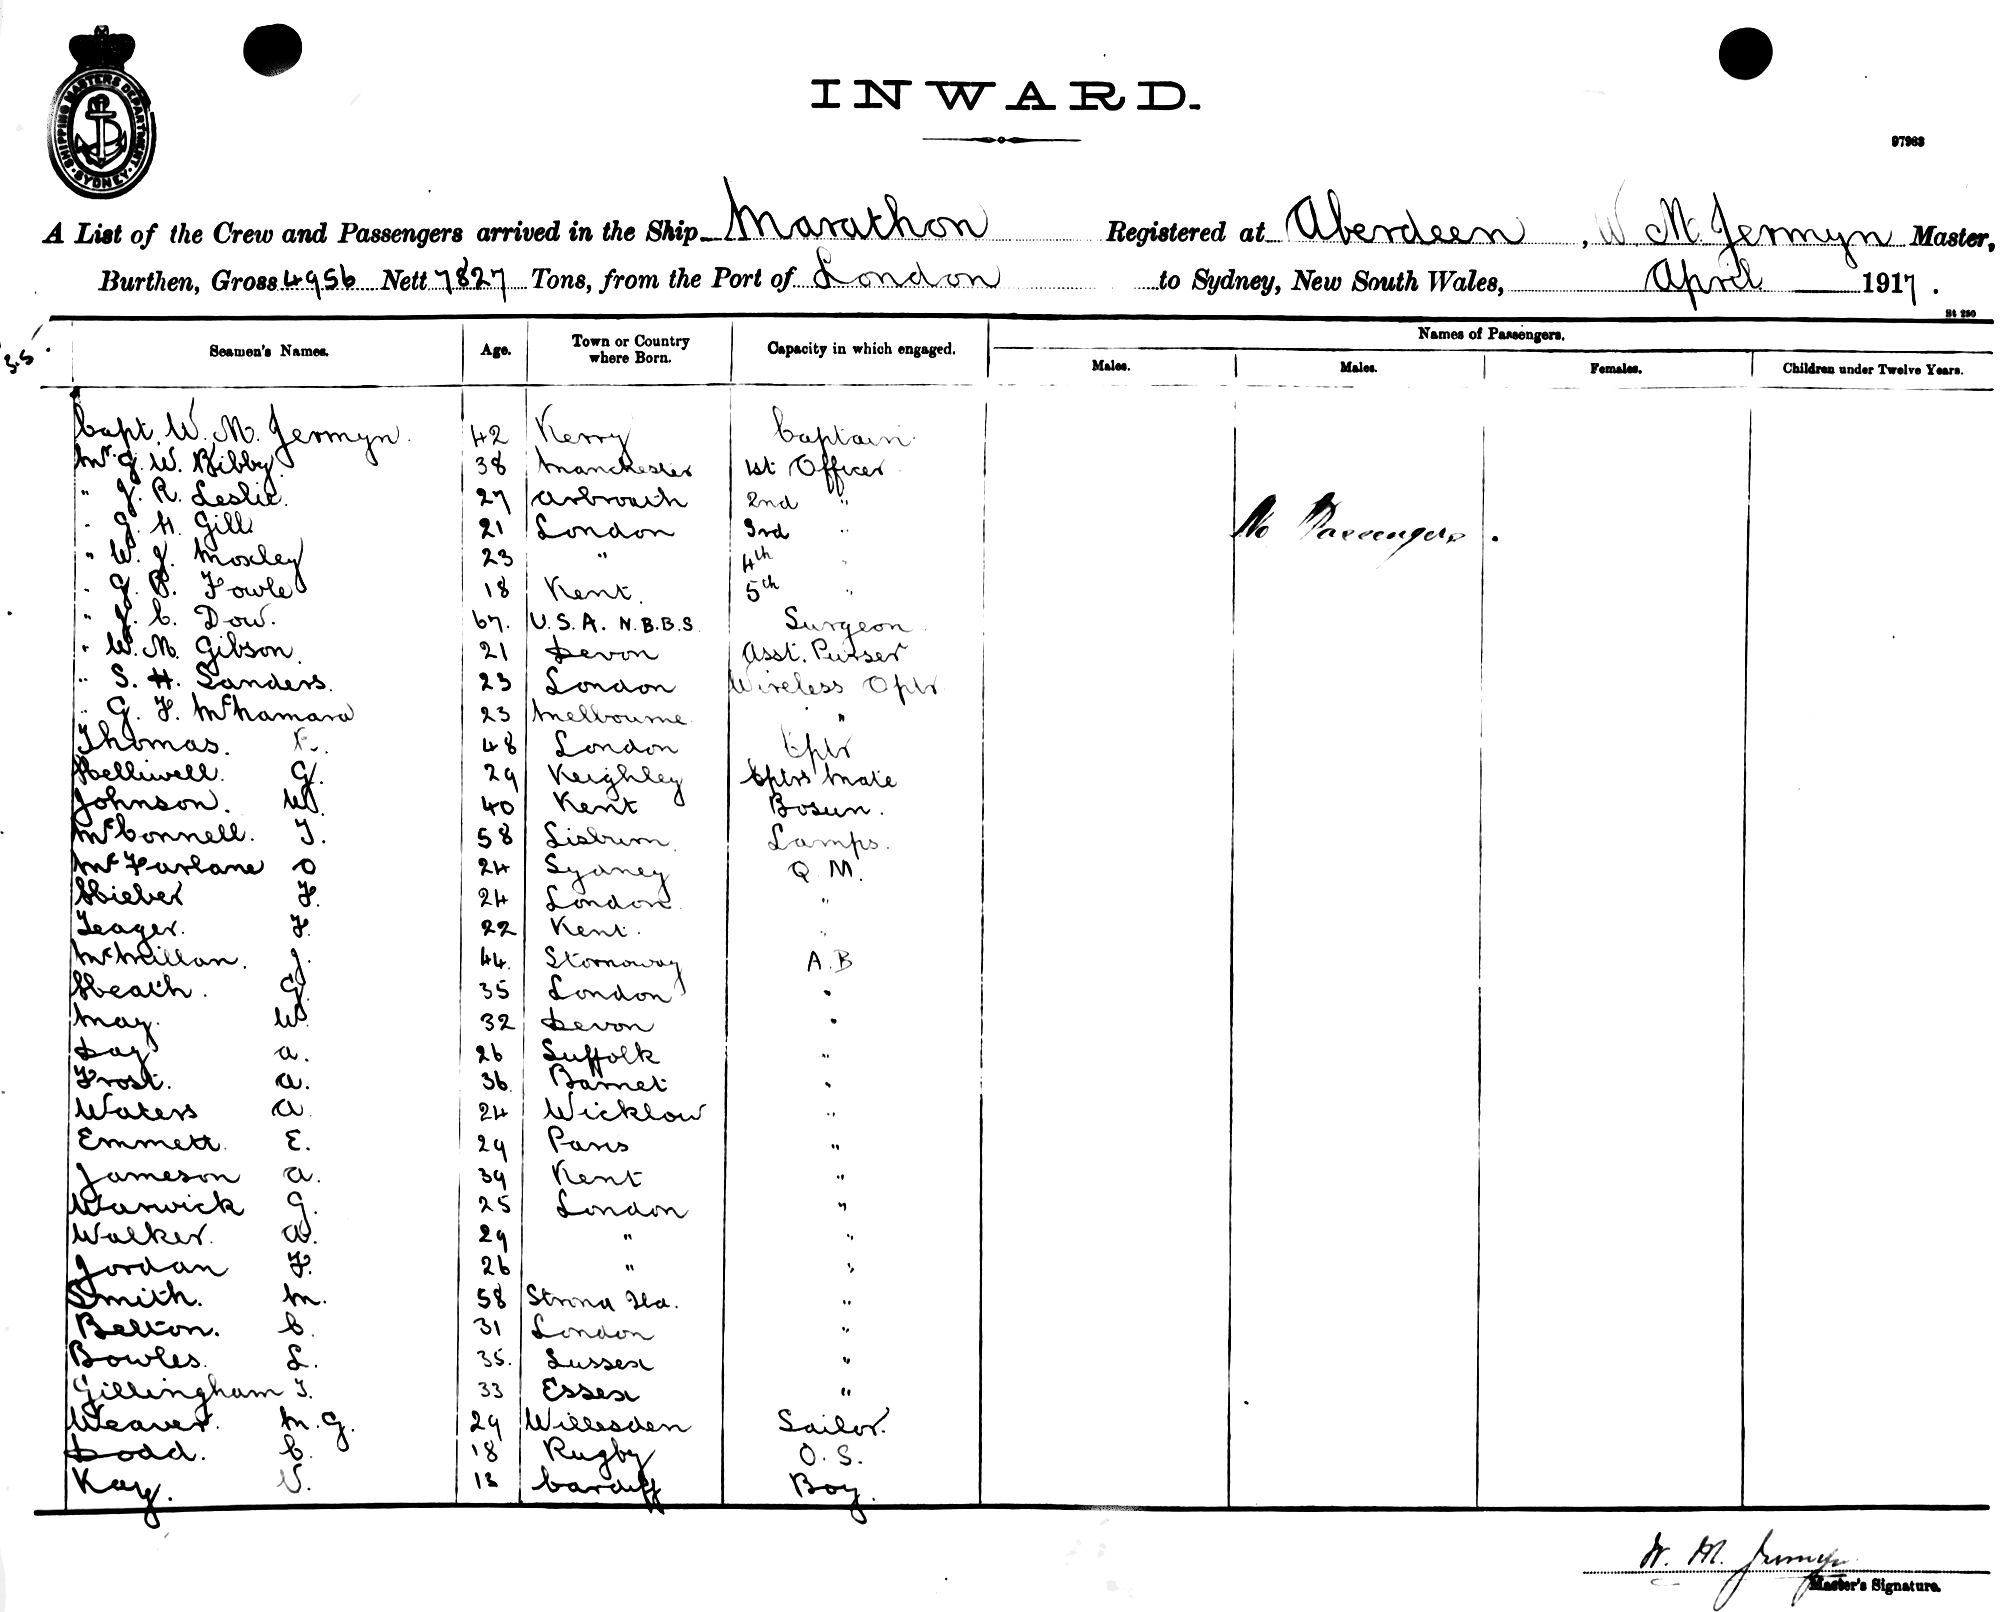 SHIPPING MASTERS DEPARTMENT. SYDNEY.
INWARD.
97963
A List of the Crew and Passengers arrived in the Ship Marathon Registered at Aberdeen, W M. Jermyn Master,
Burthen, Gross 4956 Nett 7827 Tons, from the Port of London to Sydney, New South Wales, April 1917.
St 250
35
Seamen's Names. Age. Town or Country where Born. Capacity in which engaged. Names of Passengers.
Males. Males. Females. Children under Twelve Years.
Capt. W. M. Jermyn. 42 Kerry Captain
Mr. G. W. Bibby 38 Manchester 1st Officer
" J. R. Leslie. 27 Arbroath 2nd "
" G. H. Gill 21 London 3rd "
No Passengers.
" W. J. Moxley 23 " 4th "
" G. P. Fowle 18 Kent. 5th "
" J. C. Dow. 67. U.S.A. N.B.B.S. Surgeon
" W. M. Gibson. 21 Devon Asst. Purser
" S. H. Sanders. 23 London Wireless Optr
" G. F. McNamara 23 Melbourne "
Thomas. F. 48 London Cptr
Helliwell. G. 29 Keighley Cptrs Mate
Johnson. W. 40 Kent Bosun.
McConnell. T. 58 Lisburn. Lamps.
McFarlane O 24 Sydney Q M.
Hieber F. 24 London "
Teager. F. 22 Kent. "
McMillan. J. 44. Stornoway A.B
Heath. G. 35 London "
May. W. 32 Devon "
Day A. 26 Suffolk "
Frost. A. 36. Barnet "
Waters A. 24 Wicklow "
Emmett. E. 29 Paris "
Jameson A. 39 Kent "
Warwick G. 25 London "
Walker. A. 29 " "
Jordan F. 26 " "
Smith. M. 58 "
Belton. C. 31 London "
Bowles. L. 35. Sussex "
Gillingham T. 33 Essex "
Weaver. M. G. 29 Willesden Sailor.
Dodd. C. 18 Rugby O. S.
Kay. V. Cardiff Boy.
W. M. Jermyn
Master's Signature.